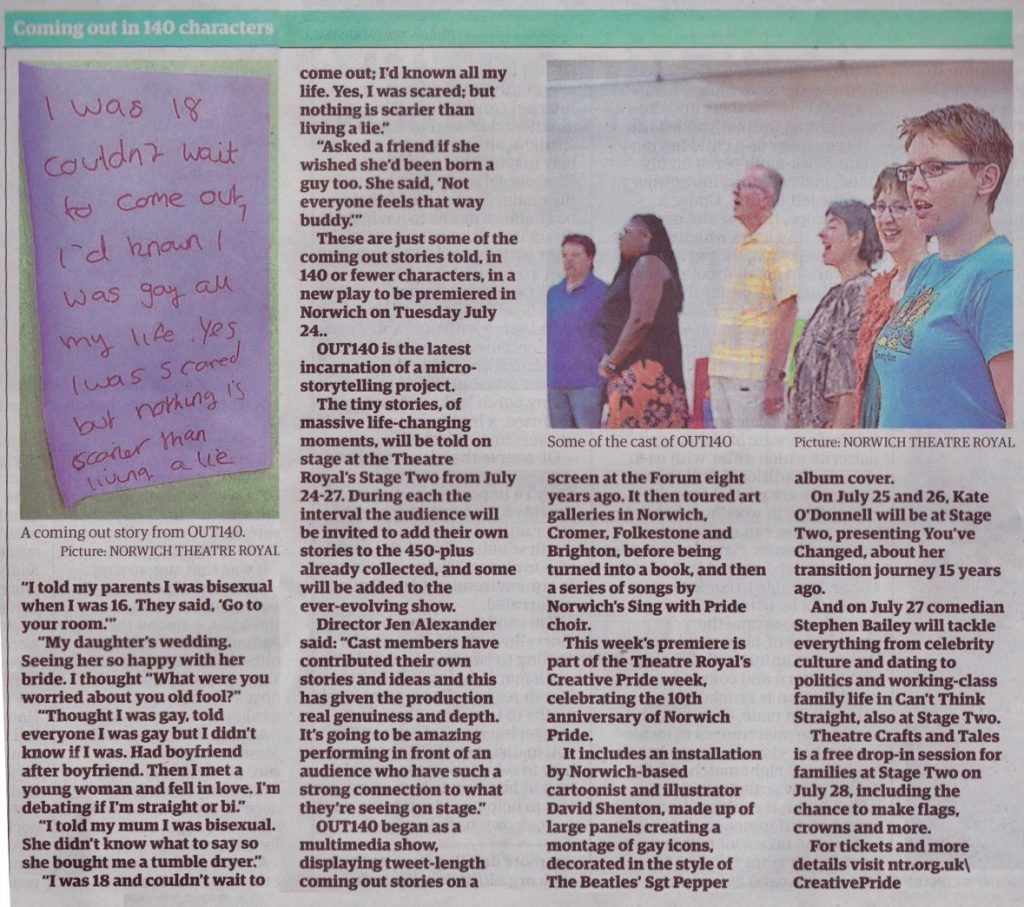 Coming out in 140 characters
I was 18
couldn't wait
to come out,
I'd known I
was gay all
my life. Yes
I was scared
but nothing is
scarier than
living a lie
A coming out story from OUT140.
Picture: NORWICH THEATRE ROYAL
“I told my parents I was bisexual
when I was 16. They said, ‘Go to
your room.’”
“My daughter’s wedding.
Seeing her so happy with her
bride. I thought “What were you
worried about you old fool?”
“Thought I was gay, told
everyone I was gay but I didn’t
know if I was. Had boyfriend
after boyfriend. Then I met a
young woman and fell in love. I’m
debating if I’m straight or bi.”
“I told my mum I was bisexual.
She didn’t know what to say so
she bought me a tumble dryer.”
“I was 18 and couldn’t wait to
come out; I’d known all my
life. Yes, I was scared; but
nothing is scarier than
living a lie.”
“Asked a friend if she
wished she’d been born a
guy too. She said, ‘Not
everyone feels that way
buddy.’”
These are just some of the
coming out stories told, in
140 or fewer characters, in a
new play to be premiered in
Norwich on Tuesday July
24..
OUT140 is the latest
incarnation of a micro-
storytelling project.
The tiny stories, of
massive life-changing
moments, will be told on
stage at the Theatre
Royal’s Stage Two from July
24-27. During each the
interval the audience will
be invited to add their own
stories to the 450-plus
already collected, and some
will be added to the
ever-evolving show.
Director Jen Alexander
said: “Cast members have
contributed their own
stories and ideas and this
has given the production
real genuiness and depth.
It’s going to be amazing
performing in front of an
audience who have such a
strong connection to what
they’re seeing on stage.”
OUT140 began as a
multimedia show,
displaying tweet-length
coming out stories on a
Some of the cast of OUT140
Picture: NORWICH THEATRE ROYAL
screen at the Forum eight
years ago. It then toured art
galleries in Norwich,
Cromer, Folkestone and
Brighton, before being
turned into a book, and then
a series of songs by
Norwich’s Sing with Pride
choir.
This week’s premiere is
part of the Theatre Royal’s
Creative Pride week,
celebrating the 10th
anniversary of Norwich
Pride.
It includes an installation
by Norwich-based
cartoonist and illustrator
David Shenton, made up of
large panels creating a
montage of gay icons,
decorated in the style of
The Beatles’ Sgt Pepper
album cover.
On July 25 and 26, Kate
O’Donnell will be at Stage
Two, presenting You’ve
Changed, about her
transition journey 15 years
ago.
And on July 27 comedian
Stephen Bailey will tackle
everything from celebrity
culture and dating to
politics and working-class
family life in Can’t Think
Straight, also at Stage Two.
Theatre Crafts and Tales
is a free drop-in session for
families at Stage Two on
July 28, including the
chance to make flags,
crowns and more.
For tickets and more
details visit ntr.org.uk\
CreativePride